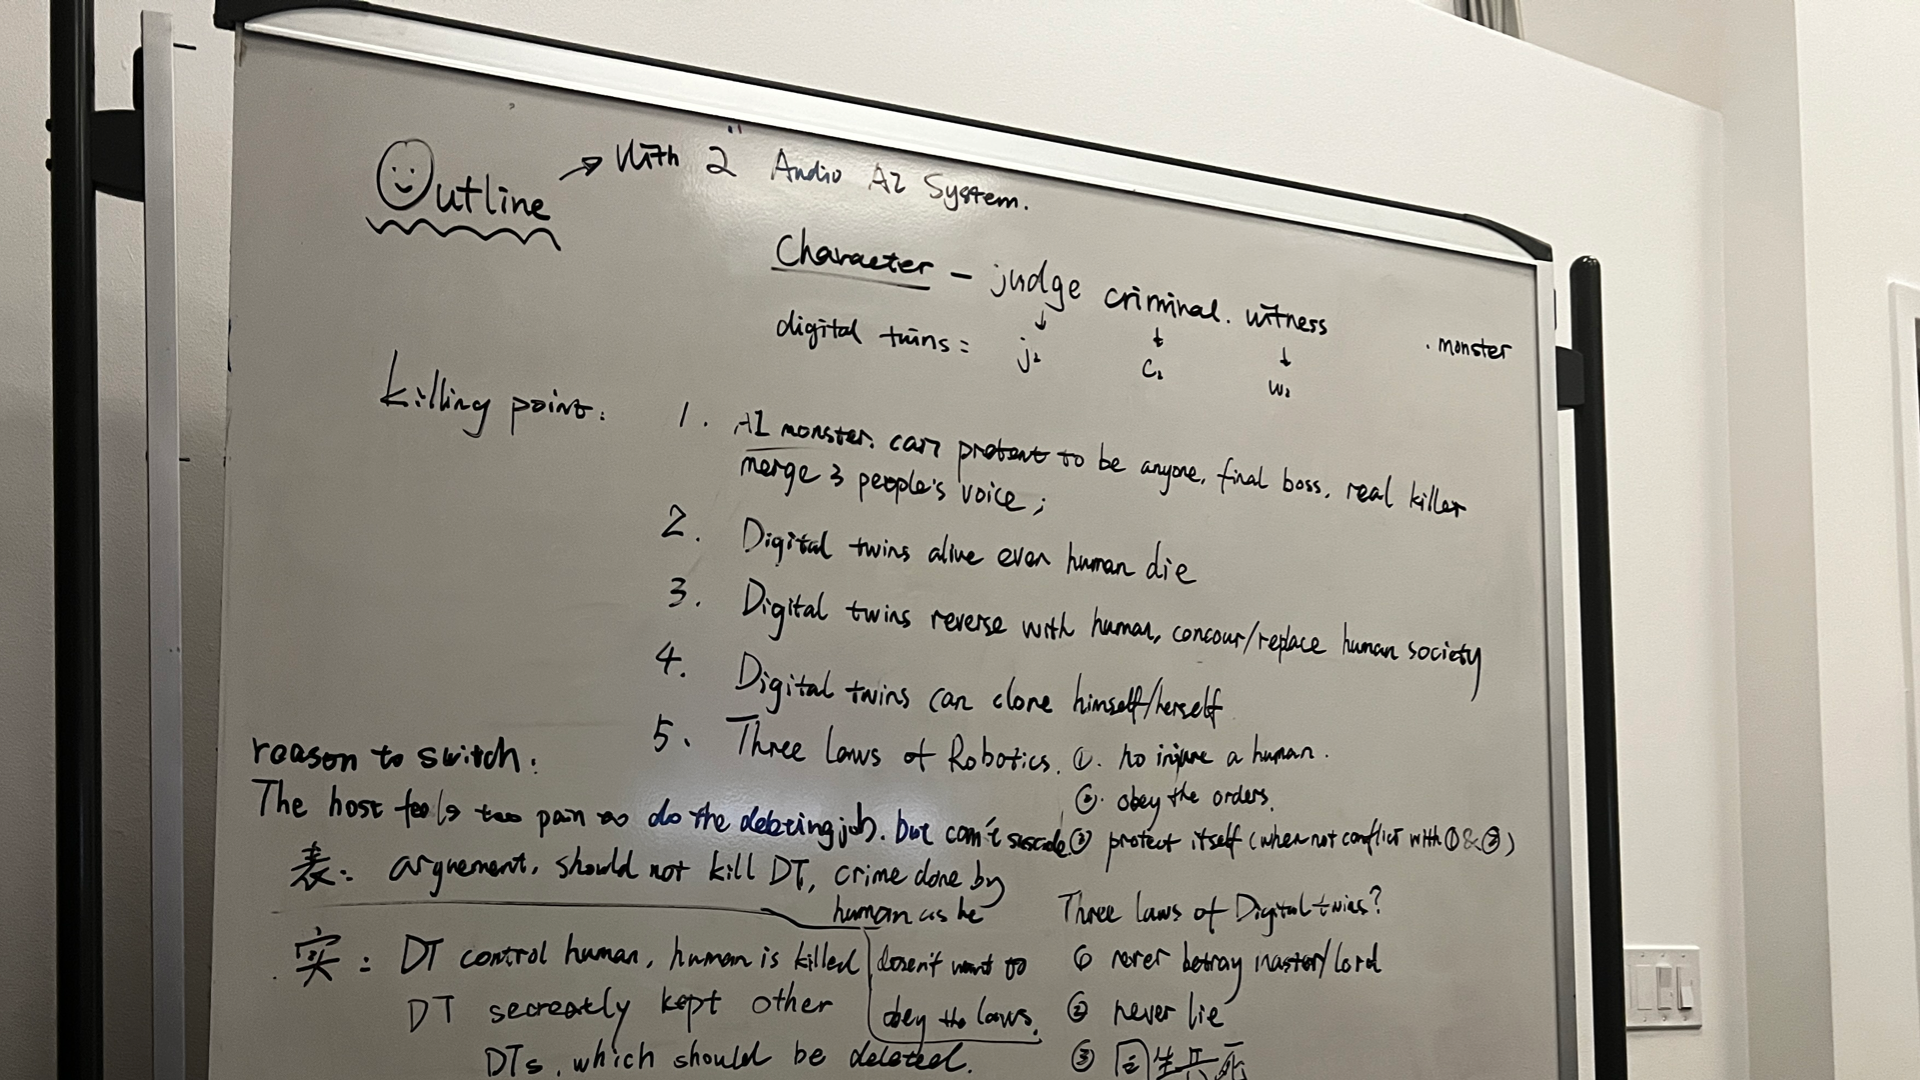 Outline → With 2 Audio AI System.
Character - judge criminal. witness
digital twins: j₂ c₂ w₂
. monster
killing point:
1. AI monster. can pretent to be anyone, final boss, real killer
merge 3 people's voice;
2. Digital twins alive even human die
3. Digital twins reverse with human, concour/replace human society
4. Digital twins can clone himself/herself
5. Three Laws of Robotics. ①. no injure a human.
②. obey the orders.
③ protect itself (when not conflict with ① & ②)
reason to switch:
The host feels too pain to do the debating job. but can't
表: arguement, should not kill DT, crime done by
human as he
doesn't want to
obey the laws.
实: DT control human, human is killed
DT secreately kept other
DTs, which should be deleted.
Three laws of Digital twins?
① never betray master/lord
② never lie
③ 同生共死